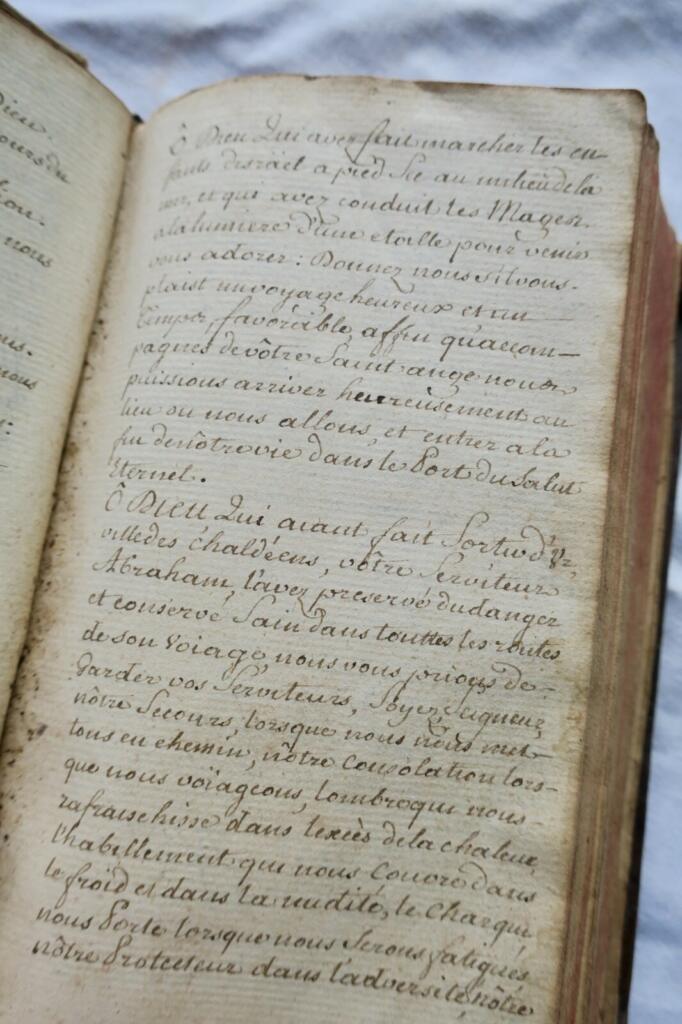 Dieu.
ours du
tion.
nous
ns.
nous
:
Ô Dieu Qui avez fait marcher les en-
fants disräel a pied Sec au milieu de la
mer, et qui avez conduit les Mages
a la lumiere d'une etoille pour venir
vous adorer : Donnez nous s'il vous-
plaist un voyage heureux et un
temps, favorable, affin qu'accom-
pagnés de vôtre Saint ange nous
puissions arriver heureusement au
lieu ou nous allons, et entrer a la
fin de nôtre vie dans le Port du Salut
Eternel.
Ô Dieu Qui aiant fait Sortir d'Ur,
ville des Chaldéens, vôtre Serviteur
Abraham, l'avez preservé du danger
et conservé Sain dans touttes les routes
de son Voiage, nous vous prions de-
garder vos Serviteurs, Soyez Seigneur
nôtre Secours, lorsque nous nous met-
tons en chemin, nôtre Consolation lors-
que nous voïageons, lombre qui nous-
rafraischisse dans lexcès de la chaleur,
l'habillement qui nous Couvre dans
le froid et dans la nudité, le Char qui
nous Porte lorsque nous Serons fatigués
nôtre Protecteur dans l'adversité, nôtre